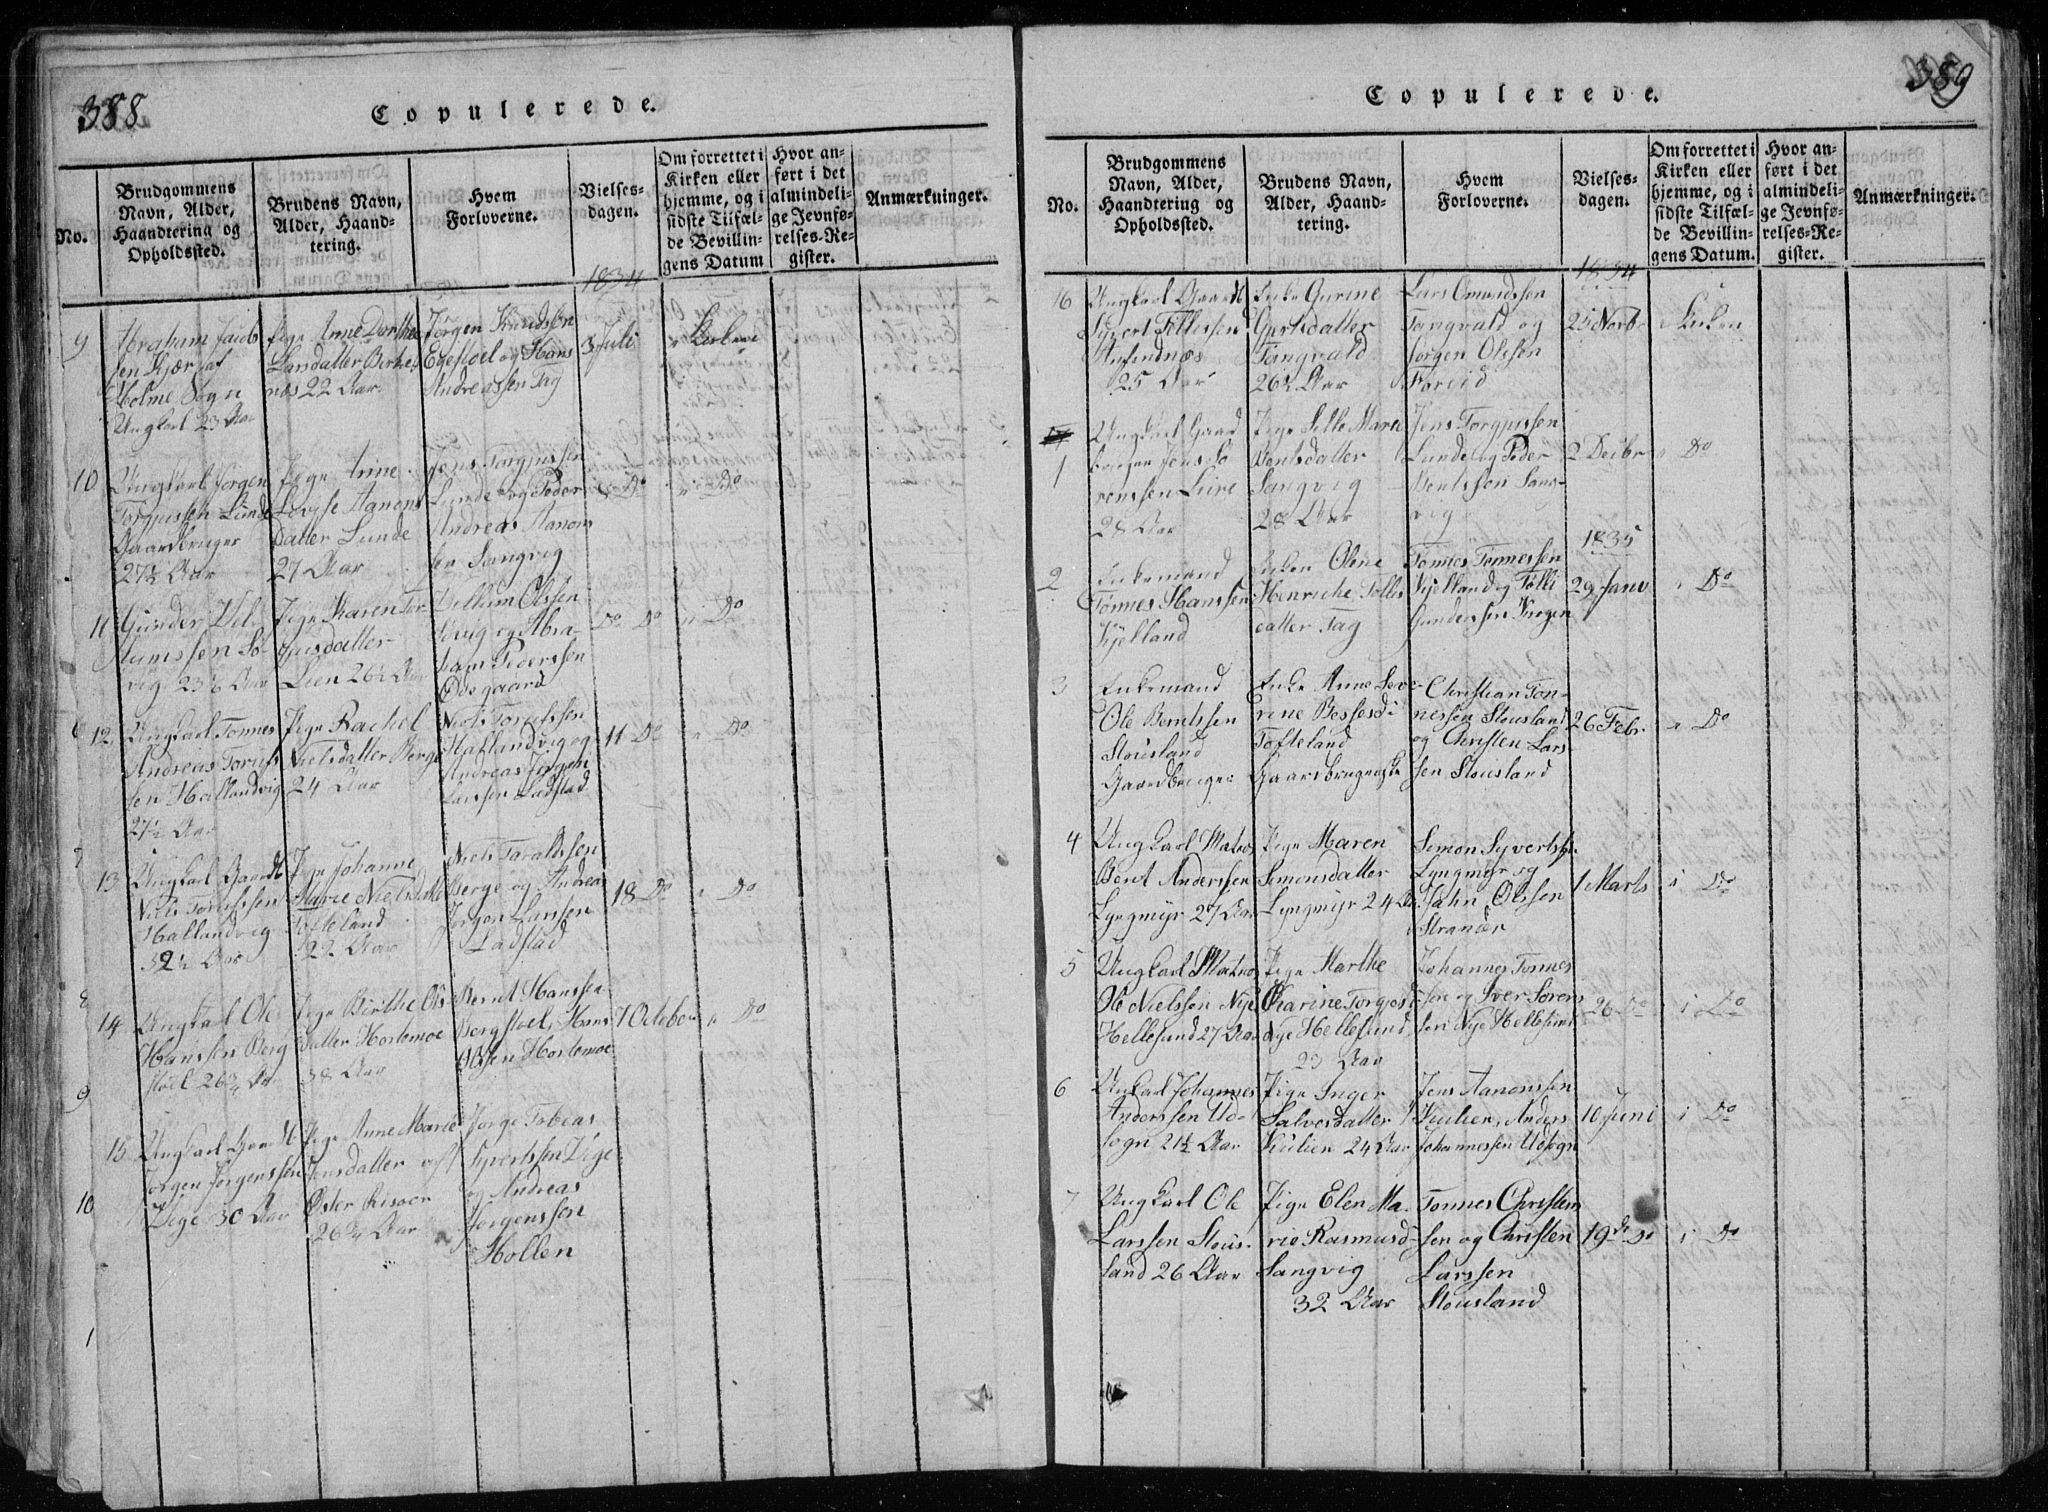 388
Copulerede.
No.
Brudgommens
Navn, Alder,
Haandtering og
Opholdssted.
Brudens Navn,
Alder, Haand-
tering.
Hvem
Forloverne.
Vielses-
dagen.
Om forrettet i
Kirken eller
hjemme, og i
sidste Tilfæl-
de Bevillin-
gens Datum
Hvor an-
ført i det
almindeli-
ge Jevnfø-
relses-Re-
gister.
Anmærkninger.
1834
9
Abraham Jacob
sen Kjær af
Holme Sogn
Ungkarl 23 Aar
Pige Anne Dorthea
Larsdatter Birke
næs 22 Aar
Jørgen Knudsen
Egestoel og Hans
Andreassen Tag
3 Juli
10
Ungkarl Jørgen
Torgjussen Lunde
Gaardbruger
27½ Aar
Pige Trine
Lovise Aanons
datter Lunde
27 Aar
Jens Torgjussen
Lunde og Peder
Andreas Aanons
sen Sangvig
Do
i Do
11
Gunder Vil-
lumssen Sø-
vig 23½ Aar
Pige Karen Tor
gjusdatter
Lien 26½ Aar
Villum Olssen
Søvig og Abra-
ham Pederssen
Odegaard
Do Do
i Do
12
Ungkarl Tonnes
Andreas Torjus
sen Hallandvig
27½ Aar
Pige Rachel
Nielsdatter Berge
24 Aar
Niels Torjussen
Hallandvig og
Andreas Jørgen
Larssen Ladstad
11 Do
i Do
13
Ungkarl Gaardb
Niels Torjussen
Hallandvig
32½ Aar
Pige Johanne
Marie Nielsdatter
Tofteland
22 Aar
Niels Taraldssen
Berge og Andreas
Jørgen Larssen
Ladstad
18 Do
i Do
14
Ungkarl Ole
Hanssen Berg
stoel 26¾ Aar
Pige Birthe Ols
datter Hortemoe
38 Aar
Bernt Hanssen
Bergstoel, Hans
Olssen Hortemoe
7 October
i Do
15
Ungkarl Gaardb
Jørgen Jørgenssen
Vige 30 Aar
Pige Anne Marie
Jensdatter af
Øster Risøer
26¾ Aar
Jørge Tobias
Syvertssen Vige
og Andreas
Jørgenssen
Hollen
6
7
8
9
10
1
389
Copulerede.
No.
Brudgommens
Navn, Alder,
Haandtering og
Opholdsted.
Brudens Navn,
Alder, Haand-
tering.
Hvem
Forloverne.
Vielses-
dagen.
Om forrettet i
Kirken eller
hjemme, og i
sidste Tilfæl-
de Bevillin-
gens Datum.
Hvor an-
ført i det
almindeli-
ge Jevnfø-
relses-Re-
gister.
Anmærkninger.
1834
16
Ungkarl Gaardb
Syvert Tellefsen
25 Aar
Enke Gurine
Gjertsdatter
Tangvald
26½ Aar
Lars Omundssen
Tangvald og
Jørgen Olssen
25 Novbr
i Kirken
1
Ungkarl Gaard
brugen Jens So
renssen Leire
28 Aar
Pige Sille Marie
Berntsdatter
Sangvig
28 Aar
Jens Torgjussen
Lunde og Peder
Berntssen Sang-
vig
2 Decbr
i Do
1835
2
Enkemand
Tønnes Hanssen
Kjelland
Enken Olene
Hinriche Tollis
datter Tag
Tønnes Tønnessen
Kjelland og Tolli
Gunderssen Krogen
29 Janv
i Do
3
Enkemand
Ole Berntssen
Stousland
Gaardbruger
Enke Anne Seve-
rine Bessesd
Tofteland
Gaardbrugerske
Christian Ton-
nessen Stousland
og Christen Lars
sen Stousland
26 Febr
i Do
4
Ungkarl Matros
Bent Anderssen
Lyngmyr 27 Aar
Pige Maren
Simonsdatter
Lyngmyr 24 Aar
Simon Syvertssen
Lyngmyr og
Jahn Olssen
Stranær
1 Marts
i Do
5
Ungkarl Matros
Ole Nielssen Nye
Hellesund 27 Aar
Pige Marthe
Karine Torgersd
Nye Hellesund
23 Aar
Johannes Tonnes
sen og Iver Soren
sen Nye Hellesund
26 Do
i Do
6
Ungkarl Johannes
Anderssen Ud-
sogn 21½ Aar
Pige Inger
Salvesdatter
Kulien 24 Aar
Jens Aanonssen
Kulien, Anders
Johannessen Udsogn
10 Juni
i Do
7
Ungkarl Ole
Larssen Stous-
land 26 Aar
Pige Elen Ma-
rie Rasmusd
Sangvig
32 Aar
Tonnes Christen
sen og Christen
Larssen
Stousland
19de Do
i Do